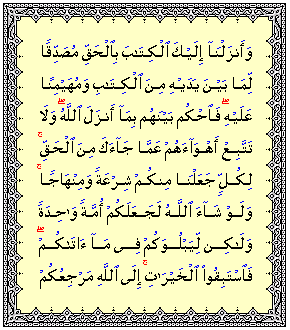 وَأَنزَلْنَآ إِلَيْكَ ٱلْكِتَٰبَ بِٱلْحَقِّ مُصَدِّقًا
لِّمَا بَيْنَ يَدَيْهِ مِنَ ٱلْكِتَٰبِ وَمُهَيْمِنًا
عَلَيْهِ ۖ فَٱحْكُم بَيْنَهُم بِمَآ أَنزَلَ ٱللَّهُ ۖ وَلَا
تَتَّبِعْ أَهْوَآءَهُمْ عَمَّا جَآءَكَ مِنَ ٱلْحَقِّ ۚ
لِكُلٍّ جَعَلْنَا مِنكُمْ شِرْعَةً وَمِنْهَاجًا ۚ
وَلَوْ شَآءَ ٱللَّهُ لَجَعَلَكُمْ أُمَّةً وَٰحِدَةً
وَلَٰكِن لِّيَبْلُوَكُمْ فِى مَآ ءَاتَىٰكُمْ ۖ
فَٱسْتَبِقُوا۟ ٱلْخَيْرَٰتِ ۚ إِلَى ٱللَّهِ مَرْجِعُكُمْ